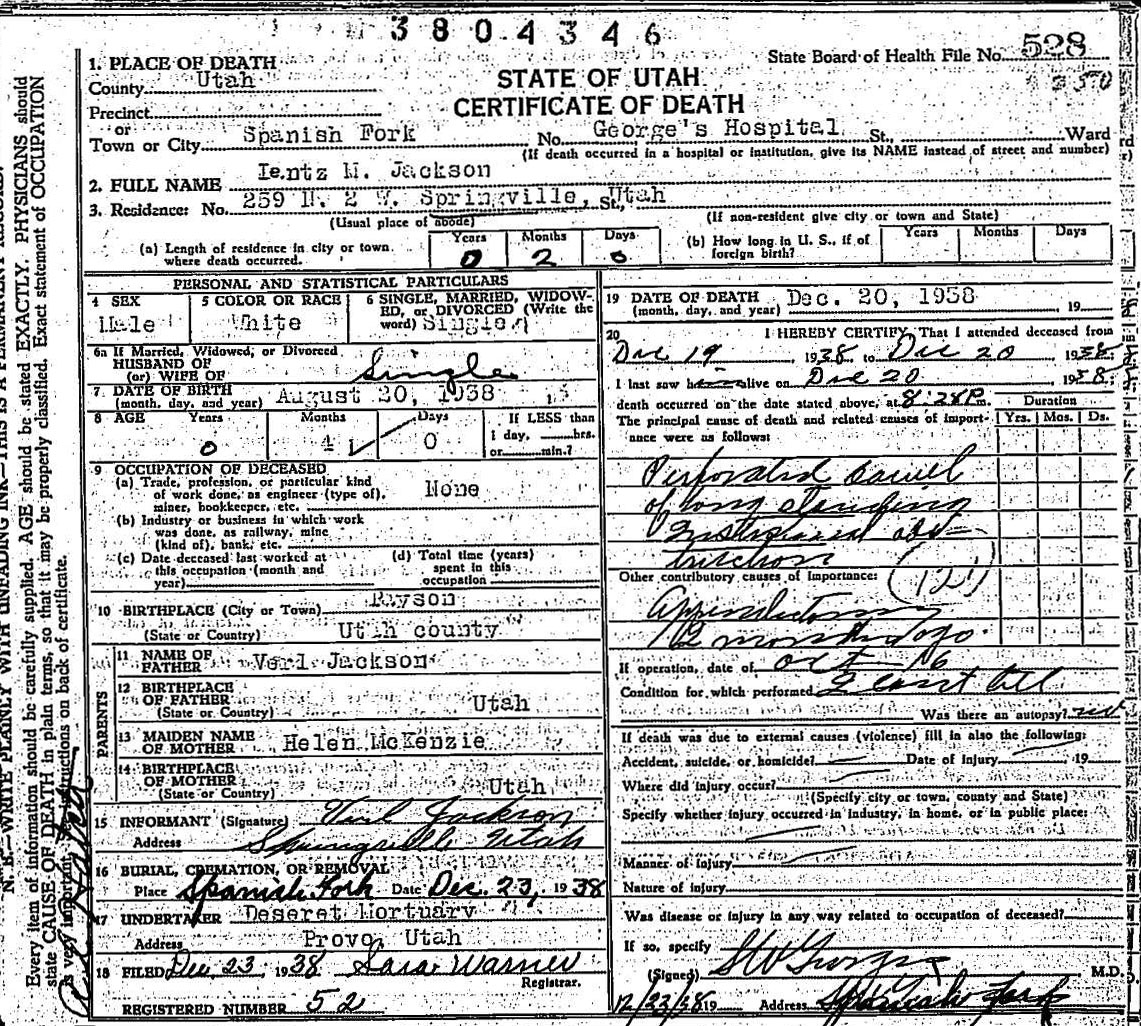 3804346
State Board of Health File No. 528
350
STATE OF UTAH
CERTIFICATE OF DEATH
1. PLACE OF DEATH
County Utah
Precinct
or
Town or City Spanish Fork No. George's Hospital St., Ward
(If death occurred in a hospital or institution, give its NAME instead of street and number)
2. FULL NAME Ientz M. Jackson
3. Residence: No. 259 N. 2 W. Springville, St., Utah
(Usual place of abode) (If non-resident give city or town and State)
(a) Length of residence in city or town where death occurred. Years 0 Months 2 Days 0
(b) How long in U. S., if of foreign birth? Years Months Days
PERSONAL AND STATISTICAL PARTICULARS
4 SEX Male
5 COLOR OR RACE White
6 SINGLE, MARRIED, WIDOWED, or DIVORCED (Write the word) Single
6a If Married, Widowed, or Divorced
HUSBAND OF
(or) WIFE OF Single
7 DATE OF BIRTH
(month, day, and year) August 20, 1938
8 AGE Years 0 Months 4 Days 0
If LESS than
1 day, hrs.
or min.?
9 OCCUPATION OF DECEASED
(a) Trade, profession, or particular kind
of work done, as engineer (type of), None
miner, bookkeeper, etc.
(b) Industry or business in which work
was done, as railway, mine
(kind of), bank, etc.
(c) Date deceased last worked at
this occupation (month and
year)
(d) Total time (years)
spent in this
occupation
10 BIRTHPLACE (City or Town) Payson
(State or Country) Utah county
PARENTS
11 NAME OF
FATHER Verl Jackson
12 BIRTHPLACE
OF FATHER
(State or Country) Utah
13 MAIDEN NAME
OF MOTHER Helen McKenzie
14 BIRTHPLACE
OF MOTHER
(State or Country) Utah
15 INFORMANT (Signature) Verl Jackson
Address Springville Utah
16 BURIAL, CREMATION, OR REMOVAL
Place Spanish Fork Date Dec. 23, 1938
17 UNDERTAKER Deseret Mortuary
Address Provo, Utah
18 FILED Dec. 23, 1938 Sara Warner
Registrar.
REGISTERED NUMBER 52
19 DATE OF DEATH Dec. 20, 1938
(month, day, and year) 19
20 I HEREBY CERTIFY, That I attended deceased from
Dec 19, 1938 to Dec 20, 1938;
I last saw h alive on Dec 20, 1938;
death occurred on the date stated above, at 8:28 P m. Duration
The principal cause of death and related causes of importance were as follows: Yrs. Mos. Ds.
Perforated bowel
of long standing
Intestinal obstruction
Other contributory causes of importance: (121)
Appendectomy
2 months ago.
If operation, date of Oct 16
Condition for which performed
Was there an autopsy? no
If death was due to external causes (violence) fill in also the following:
Accident, suicide, or homicide? Date of injury 19
Where did injury occur?
(Specify city or town, county and State)
Specify whether injury occurred in industry, in home, or in public place:
Manner of injury
Nature of injury
Was disease or injury in any way related to occupation of deceased?
If so, specify
(Signed) M.D.
12/23/38 19 Address Spanish Fork
N. B.—WRITE PLAINLY WITH UNFADING INK—THIS IS A PERMANENT RECORD.
Every item of information should be carefully supplied. AGE should be stated EXACTLY. PHYSICIANS should
state CAUSE OF DEATH in plain terms, so that it may be properly classified. Exact statement of OCCUPATION
is very important. instructions on back of certificate.